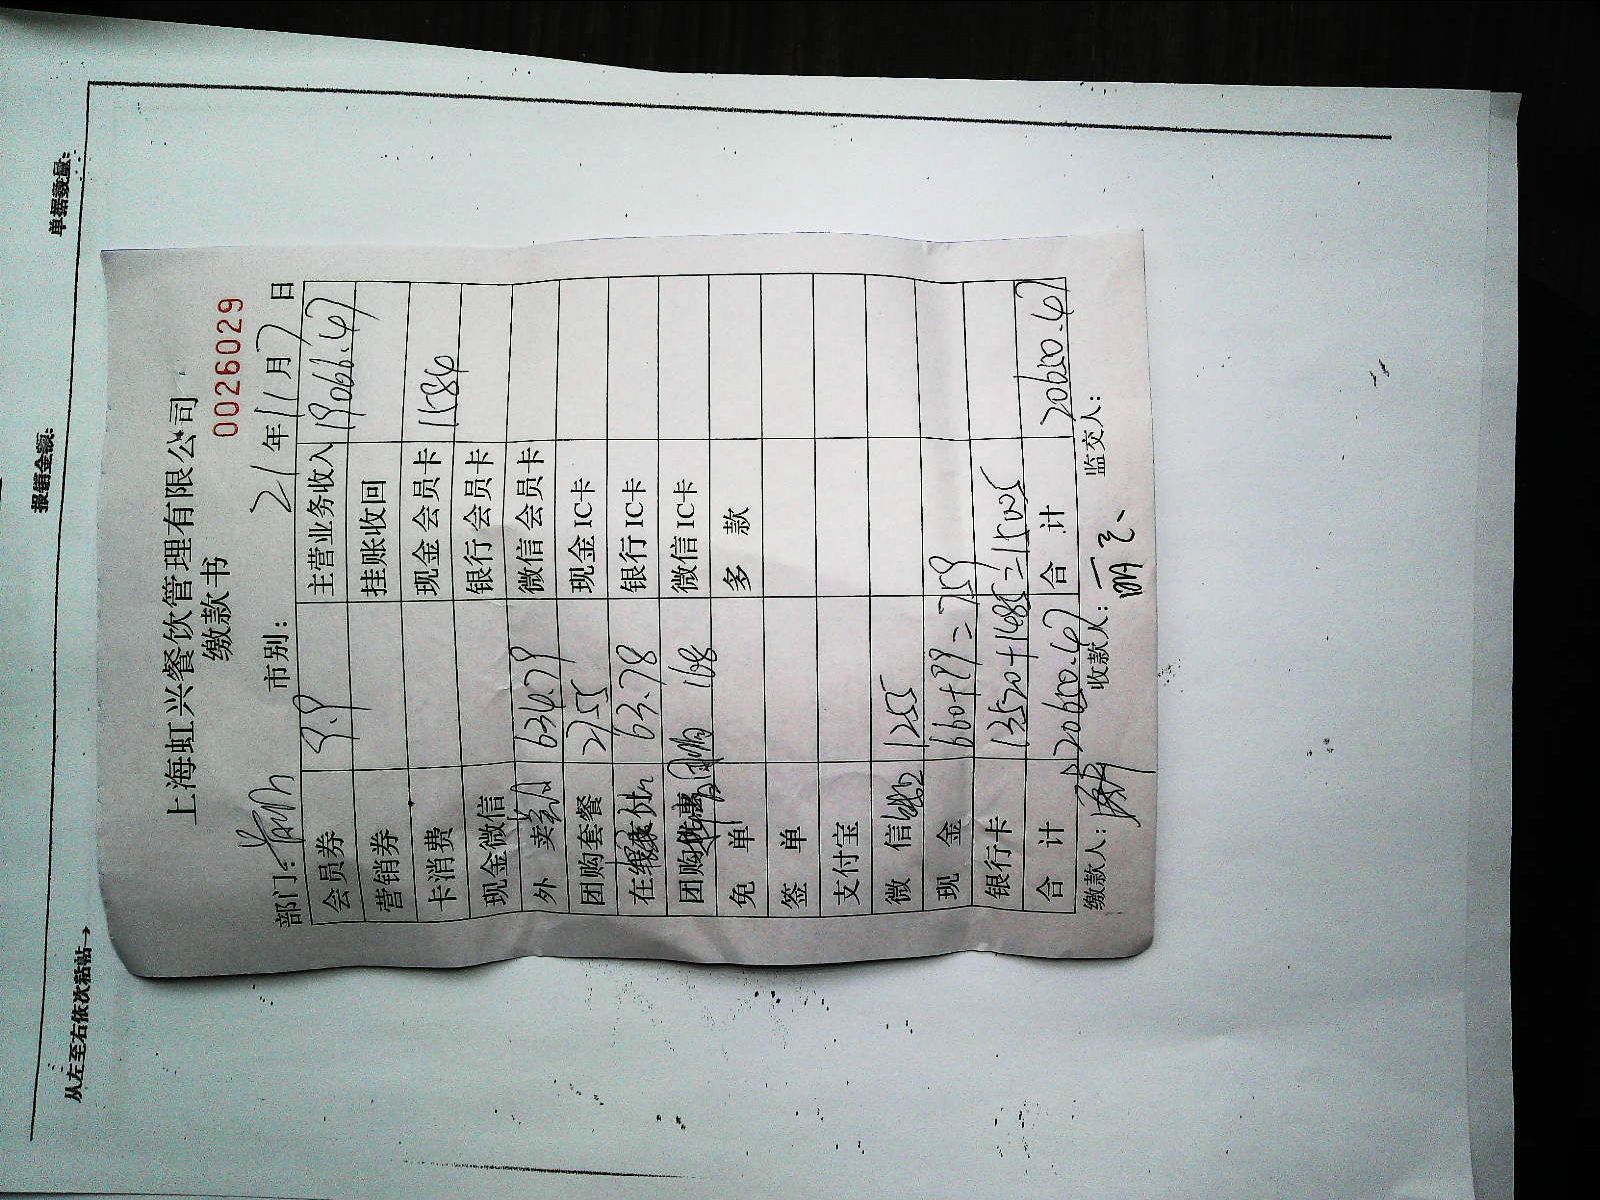 从左至右依次粘帖→ 报销金额: 单据数量:
上海虹兴餐饮管理有限公司
缴款书 0026029
部门: 市别: 21年11月7日
会员券 9.9 主营业务收入 19066.47
营销券 挂账收回
卡消费 现金会员卡 1584
现金微信 银行会员卡
外 卖 634.79 微信会员卡
团购套餐 2755 现金IC卡
63.78 银行IC卡
团购 168 微信IC卡
免 单 多 款
签 单
支付宝
微 信 1255
现 金 660+99=759
银行卡 13520+1485=15005
合 计 20650.47 合 计 20650.47
缴款人: 收款人: 监交人: